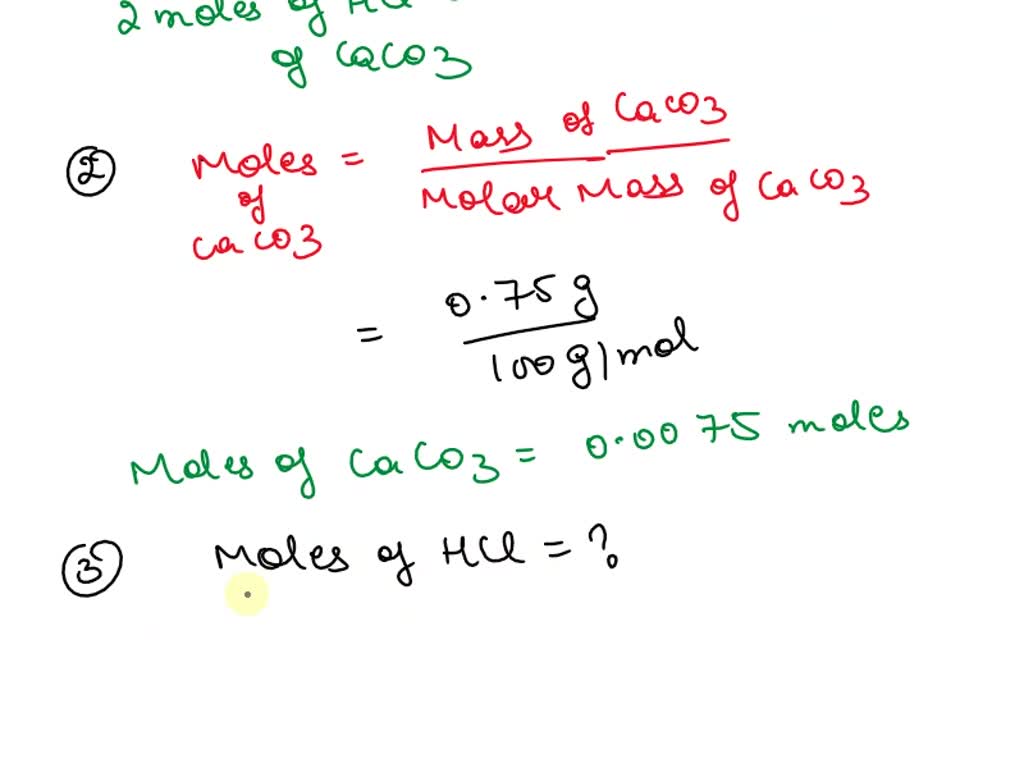 2 moles of HCl
of CaCO3
② Moles of CaCO3 = Mass of CaCO3 / Molar Mass of CaCO3
= 0.75 g / 100 g/mol
Moles of CaCO3 = 0.0075 moles
③ Moles of HCl = ?